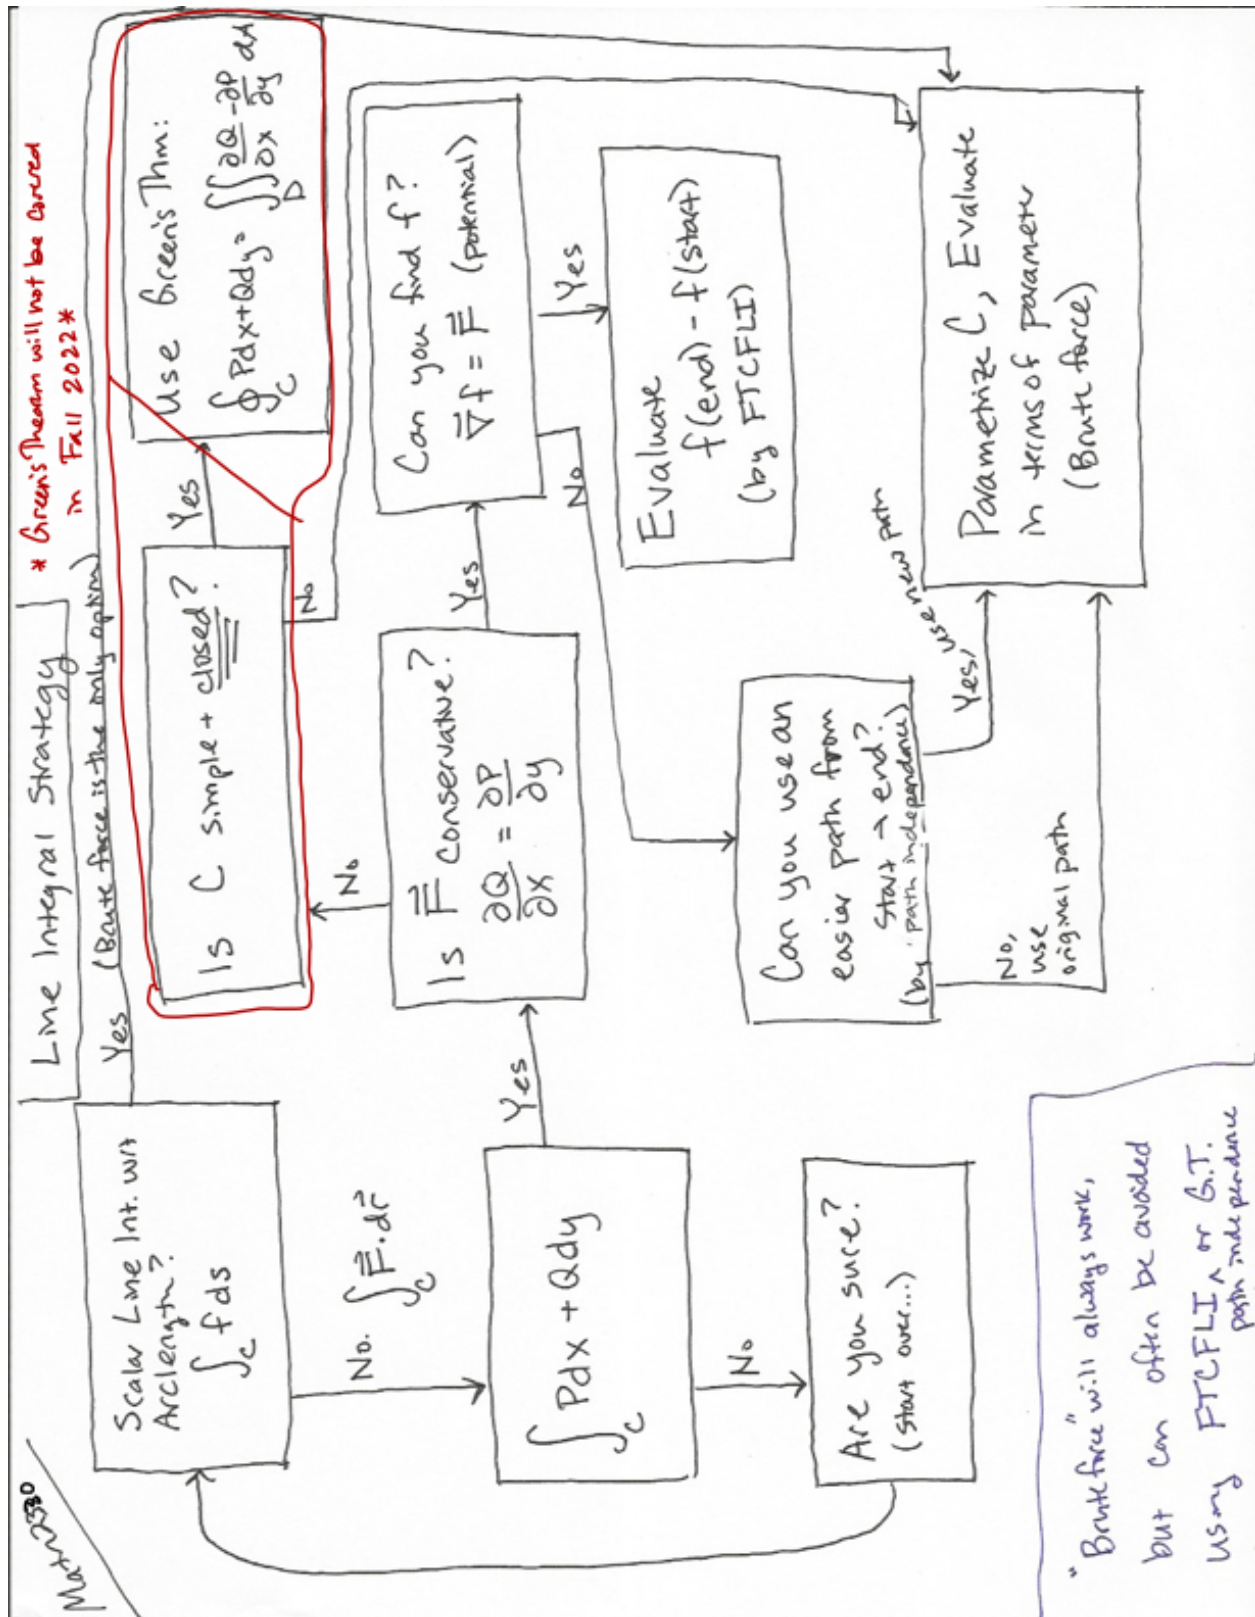 Math 2530
Line Integral Strategy
* Green's Theorem will not be covered
in Fall 2022 *
Scalar Line Int. wrt
Arclength?
∫_C f ds
Yes (Brute force is the only option)
No. ∫_C F⃗·dr⃗
∫_C Pdx + Qdy
Yes
No
Are you sure?
(start over...)
Is F⃗ conservative?
∂Q/∂x = ∂P/∂y
No
Yes
Is C simple + closed?
Yes
No
Use Green's Thm:
∮_C Pdx+Qdy = ∬_D ∂Q/∂x - ∂P/∂y dA
Can you find f?
∇⃗f = F⃗ (potential)
Yes
No
Evaluate
f(end) - f(start)
(by FTCFLI)
Can you use an
easier path from
start → end?
(by path independence)
Yes, use new path
No,
use
original path
Parametrize C, Evaluate
in terms of parameter
(Brute force)
"Brute force" will always work,
but can often be avoided
using FTCFLI ^ or G.T.
path independence